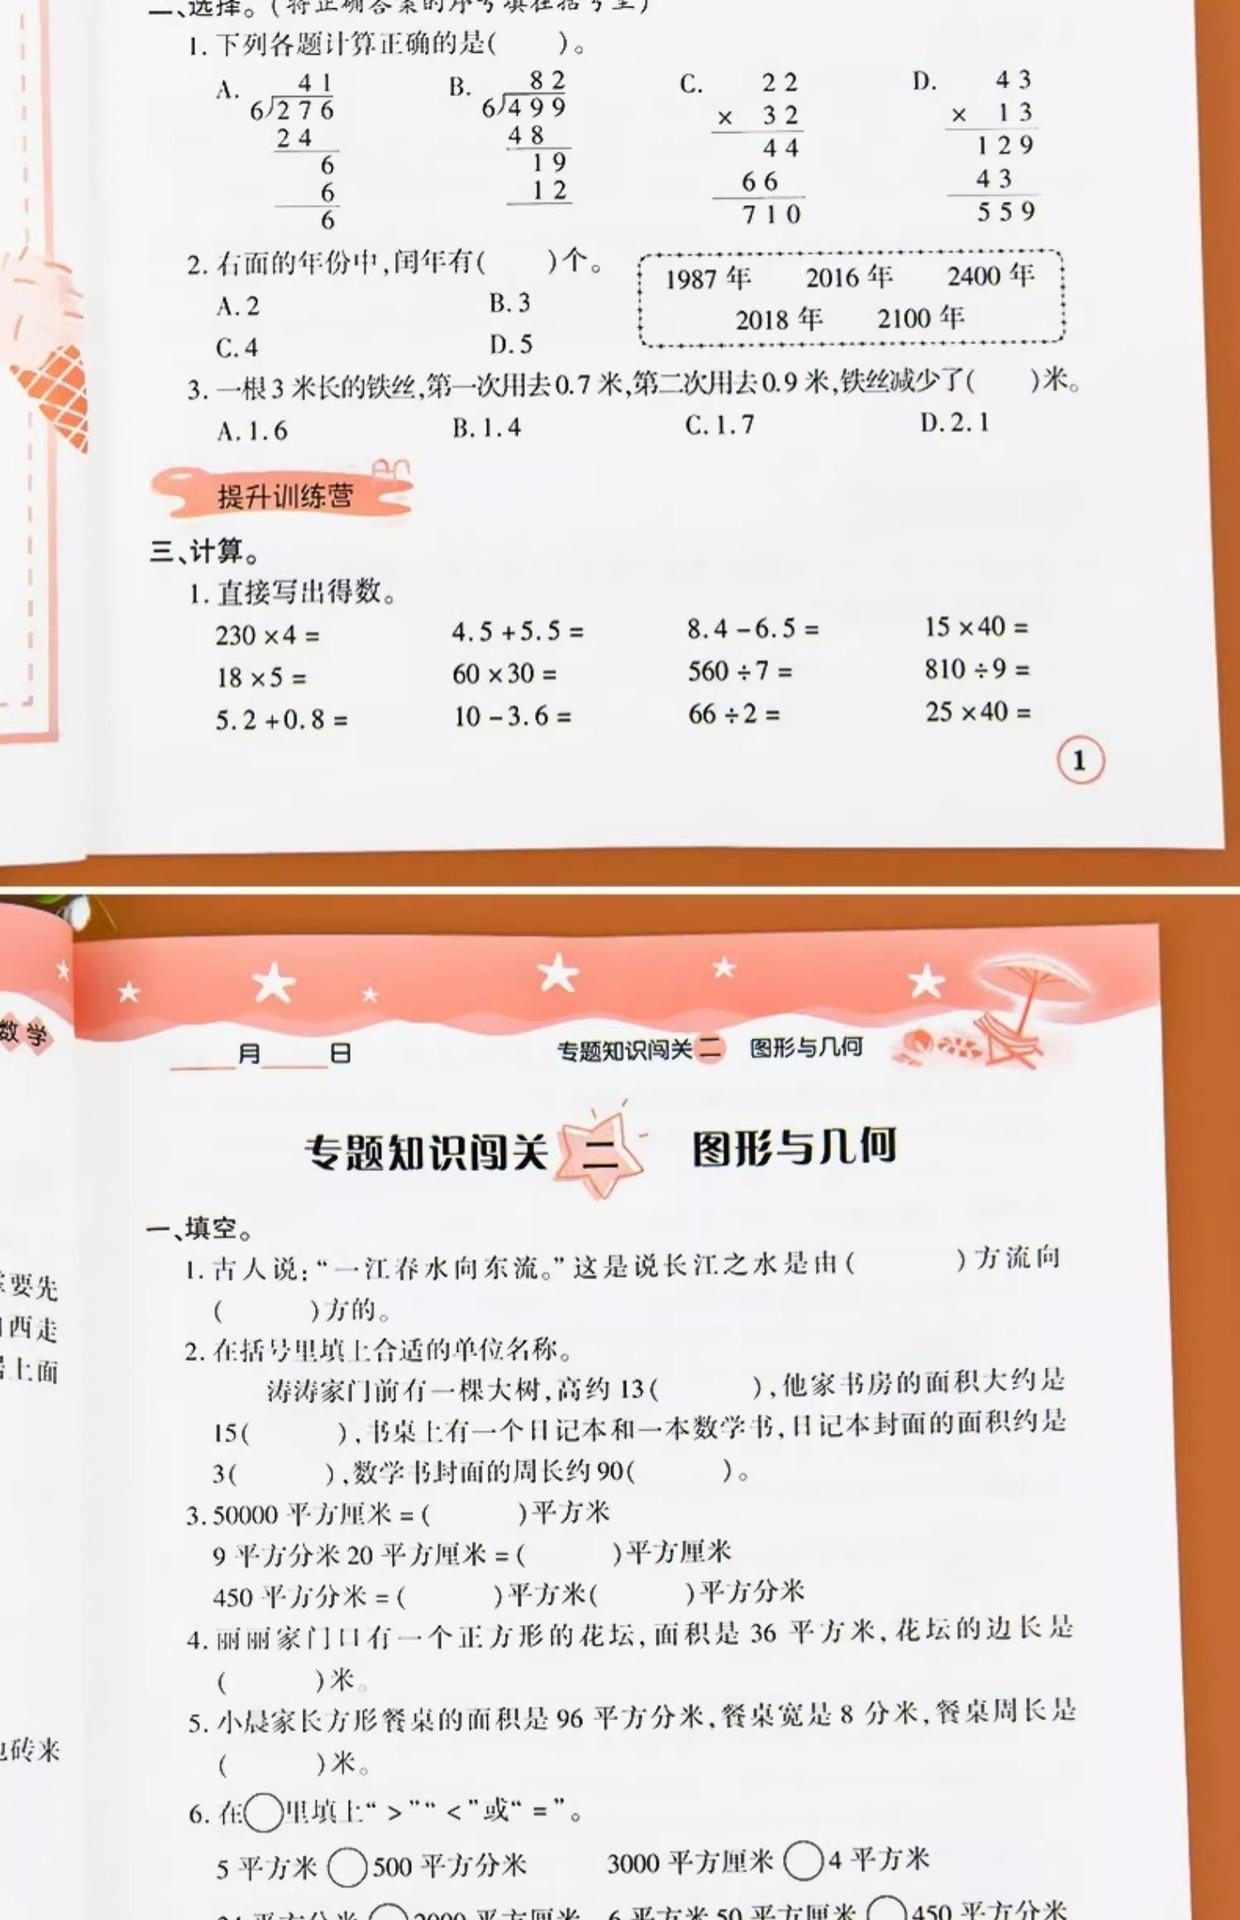 二、选择。(将正确答案的序号填在括号里)
1.下列各题计算正确的是(　　)。
A. 41
6)276
24
6
6
6
B. 82
6)499
48
19
12
C. 22
× 32
44
66
710
D. 43
× 13
129
43
559
2.右面的年份中,闰年有(　　)个。
A.2　B.3
C.4　D.5
1987年　2016年　2400年
2018年　2100年
3.一根3米长的铁丝,第一次用去0.7米,第二次用去0.9米,铁丝减少了(　　)米。
A.1.6　B.1.4　C.1.7　D.2.1
提升训练营
三、计算。
1.直接写出得数。
230×4=　4.5+5.5=　8.4-6.5=　15×40=
18×5=　60×30=　560÷7=　810÷9=
5.2+0.8=　10-3.6=　66÷2=　25×40=
1
数学
要先
西走
上面
砖来
月　日　专题知识闯关二　图形与几何
专题知识闯关二　图形与几何
一、填空。
1.古人说:“一江春水向东流。”这是说长江之水是由(　　)方流向
(　　)方的。
2.在括号里填上合适的单位名称。
涛涛家门前有一棵大树,高约13(　　),他家书房的面积大约是
15(　　),书桌上有一个日记本和一本数学书,日记本封面的面积约是
3(　　),数学书封面的周长约90(　　)。
3.50000平方厘米=(　　)平方米
9平方分米20平方厘米=(　　)平方厘米
450平方分米=(　　)平方米(　　)平方分米
4.丽丽家门口有一个正方形的花坛,面积是36平方米,花坛的边长是
(　　)米。
5.小晨家长方形餐桌的面积是96平方分米,餐桌宽是8分米,餐桌周长是
(　　)米。
6.在○里填上“>”“<”或“=”。
5平方米○500平方分米　3000平方厘米○4平方米
平方分米○2000平方厘米　6平方米50平方厘米○450平方分米